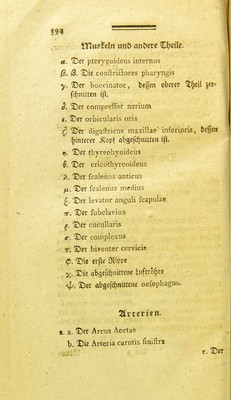 394
Muskeln und andere Theile.
α. Der pterygoideus internus
β. β. Die constrictores pharyngis
γ. Der buccinator, dessen oberer Theil zer-
schnitten ist.
δ. Der compressor narium
ε. Der orbicularis oris
ζ. Der digastricus maxillae inferioris, dessen
hinterer Kopf abgeschnitten ist.
η. Der thyreohyoideus
θ. Der cricothyreoideus
λ. Der scalenus anticus
μ. Der scalenus medius
ξ. Der levator anguli scapulae
π. Der subclavius
ρ. Der cucullaris
σ. Der complexus
τ. Der biventer cervicis
φ. Die erste Rippe
χ. Die abgeschnittene Luftröhre
ψ. Der abgeschnittene oesophagus.
Arterien.
a. a. Der Arcus Aortae
b. Die Arteria carotis sinistra
c. Der